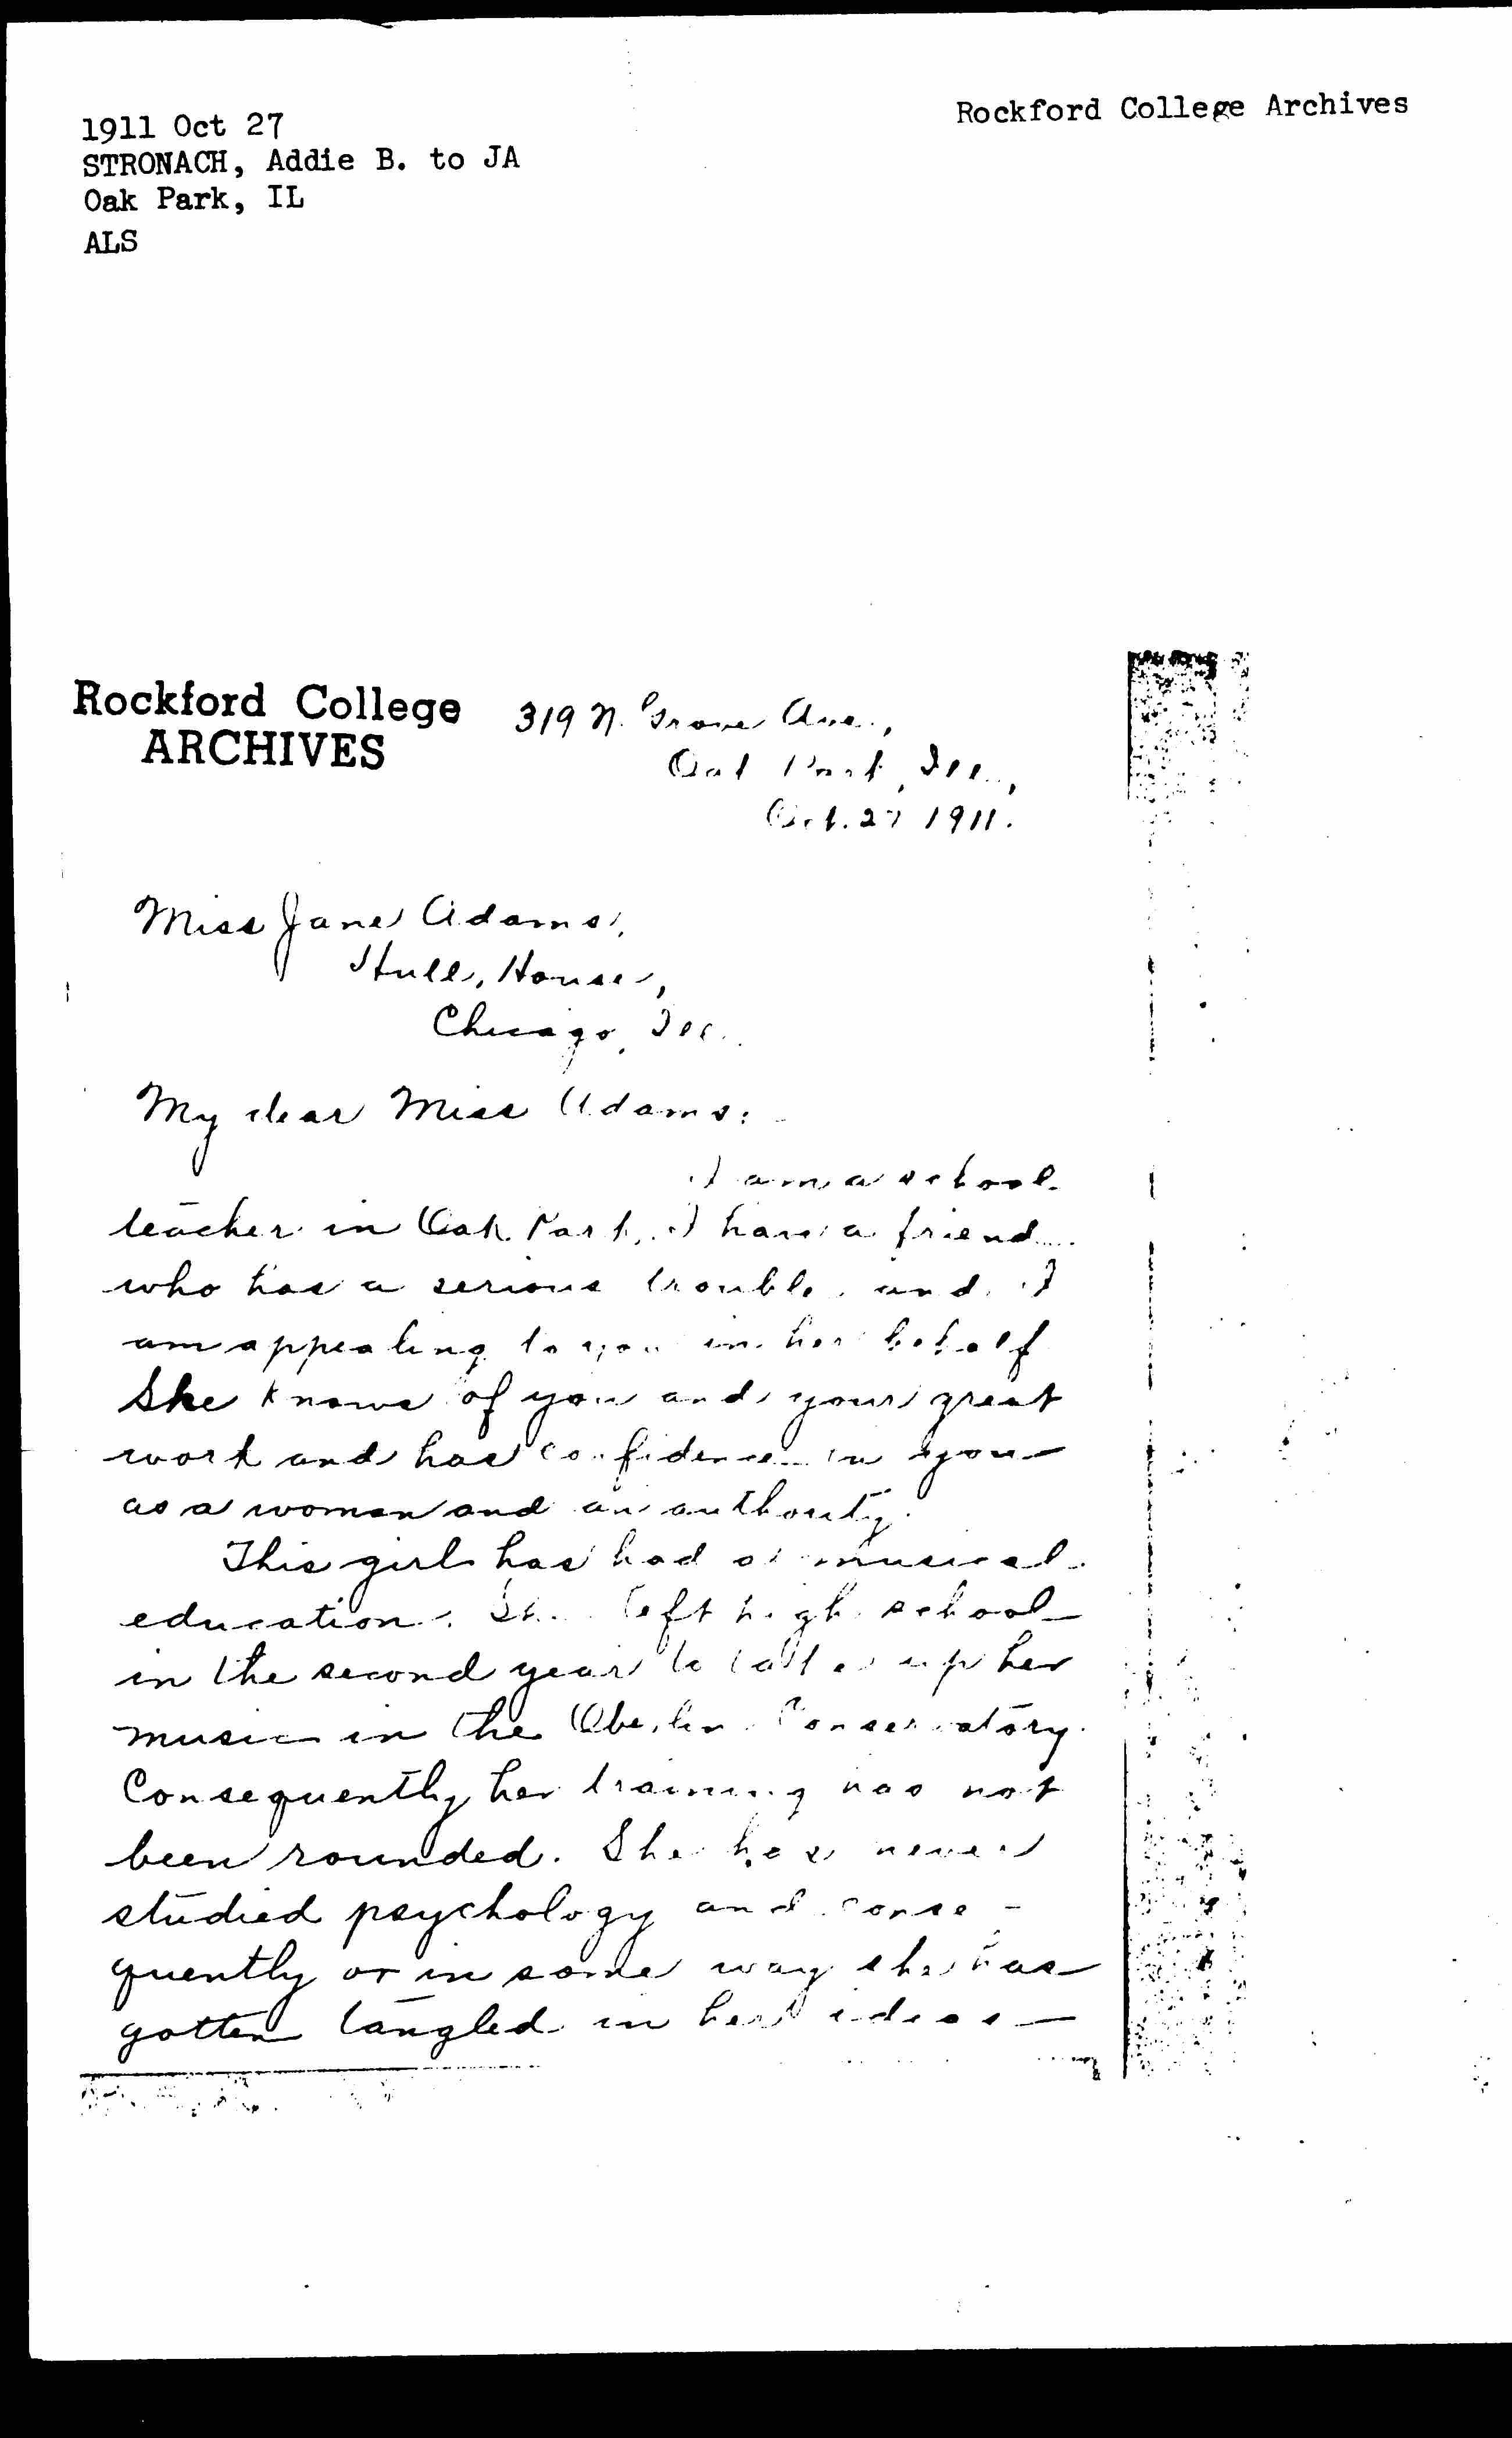 1911 Oct 27
STRONACH, Addie B. to JA
Oak Park, IL
ALS
Rockford College Archives
Rockford College
ARCHIVES
319 N. Grove Ave.,
Oak Park, Ill.,
Oct. 27 1911.
Miss Jane Adams,
Hull, House,
Chicago, Ill.
My dear Miss Adams:
I am a school
teacher in Oak Park. I have a friend
who has a serious trouble, and I
am appealing to you in her behalf
She knows of you and your great
work and has confidence in you
as a woman and an authority.
This girl has had a musical
education. She left high school
in the second year to take up her
music in the Oberlin Conservatory.
Consequently her training has not
been rounded. She has never
studied psychology and conse-
quently or in some way she has
gotten tangled in her ideas